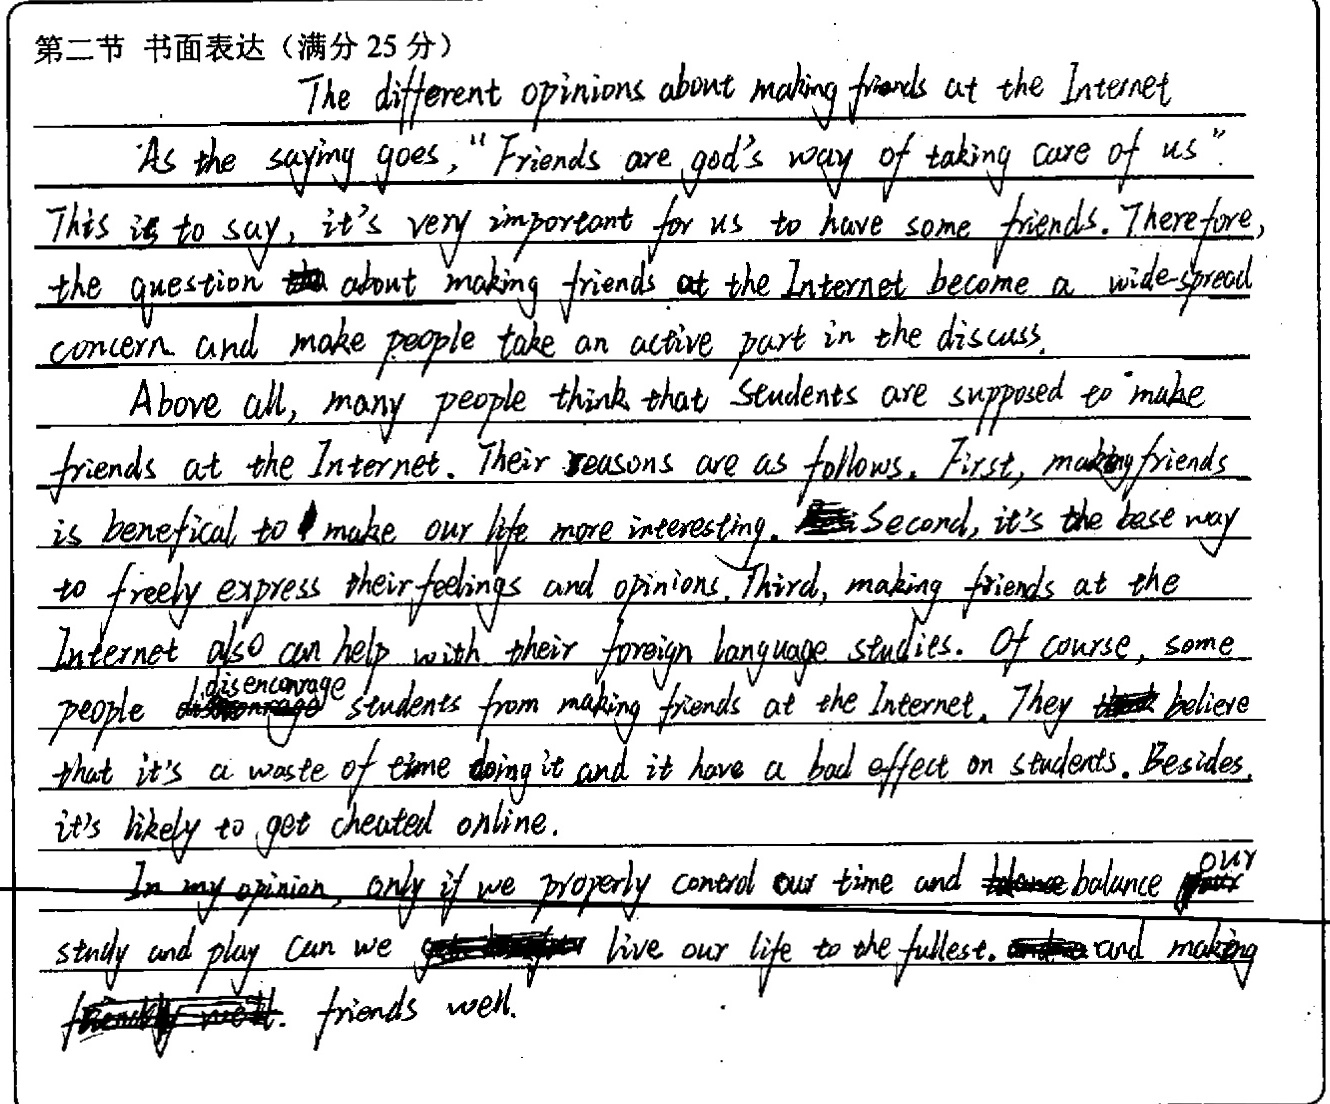 第二节 书面表达（满分 25 分）
The different opinions about making friends at the Internet
As the saying goes, "Friends are god's way of taking care of us".
This is to say, it's very important for us to have some friends. Therefore,
the question about making friends at the Internet become a wide-spread
concern and make people take an active part in the discuss.
Above all, many people think that students are supposed to make
friends at the Internet. Their reasons are as follows. First, making friends
is benefical to make our life more interesting. Second, it's the base way
to freely express their feelings and opinions. Third, making friends at the
Internet also can help with their foreign language studies. Of course, some
people disencourage students from making friends at the Internet. They believe
that it's a waste of time doing it and it have a bad effect on students. Besides,
it's likely to get cheated online.
In my opinion, only if we properly control our time and balance our
study and play can we live our life to the fullest. and making
friends well.